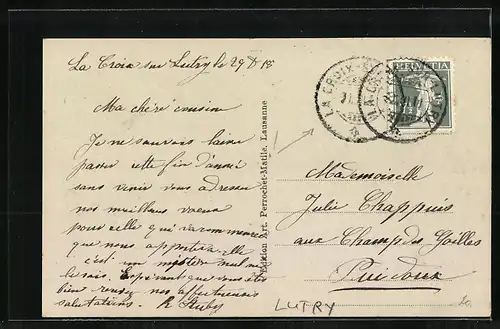 La Croix sur Lutry le 29 X 15
Ma chère cousine
Je ne saurais laisser
passer cette fin d'année
sans venir vous adresser
nos meilleurs voeux
pour celle qui va commencer
que nous apportera-t-elle
c'est un mystère nul ne
le sait. Espérant que vous êtes
bien recevez nos affectueuses
salutations.
Edition Art. Perrochet-Matile, Lausanne
LA CROIX
HELVETIA
Mademoiselle
Julie Chappuis
aux Champ des Gailles
Puidoux
LUTRY